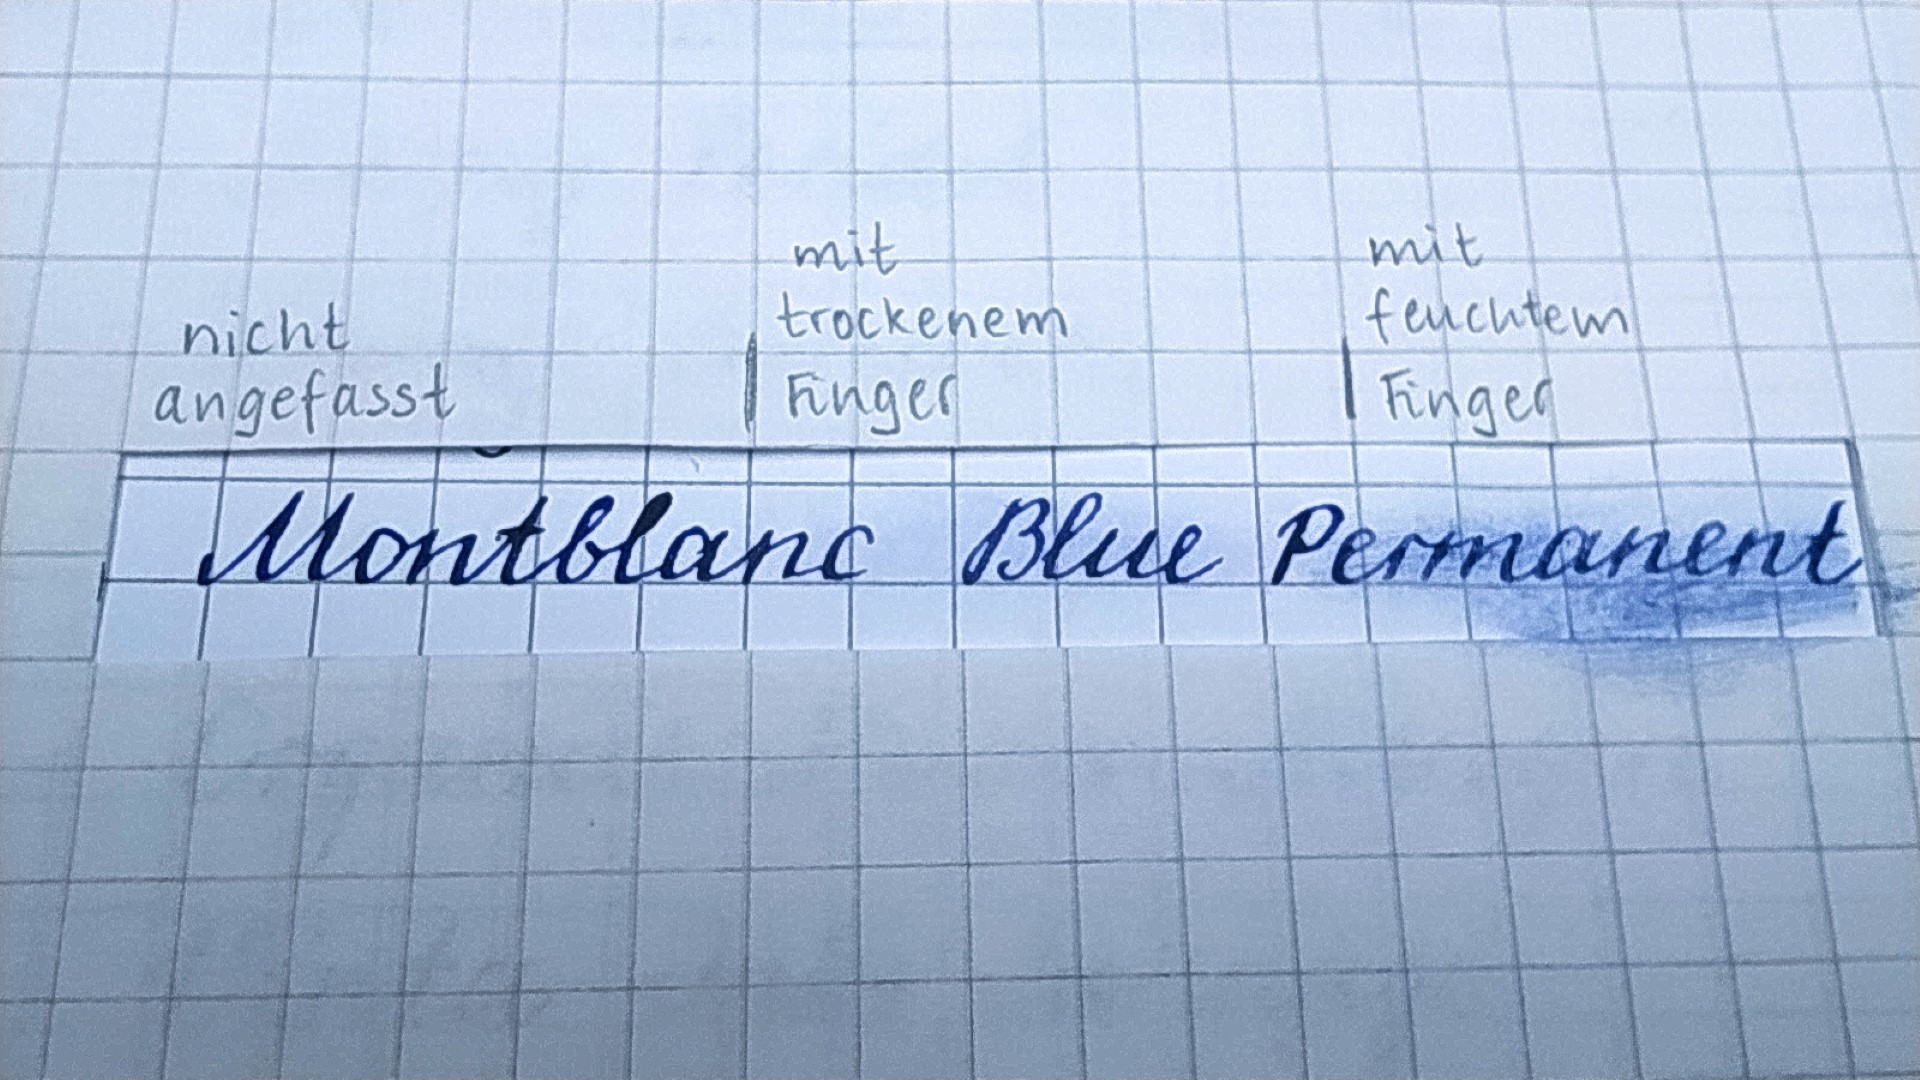 nicht
angefasst
mit
trockenem
Finger
mit
feuchtem
Finger
Montblanc Blue Permanent